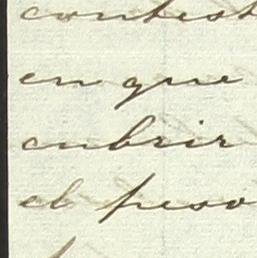 contest
en que
cubrir
el peso